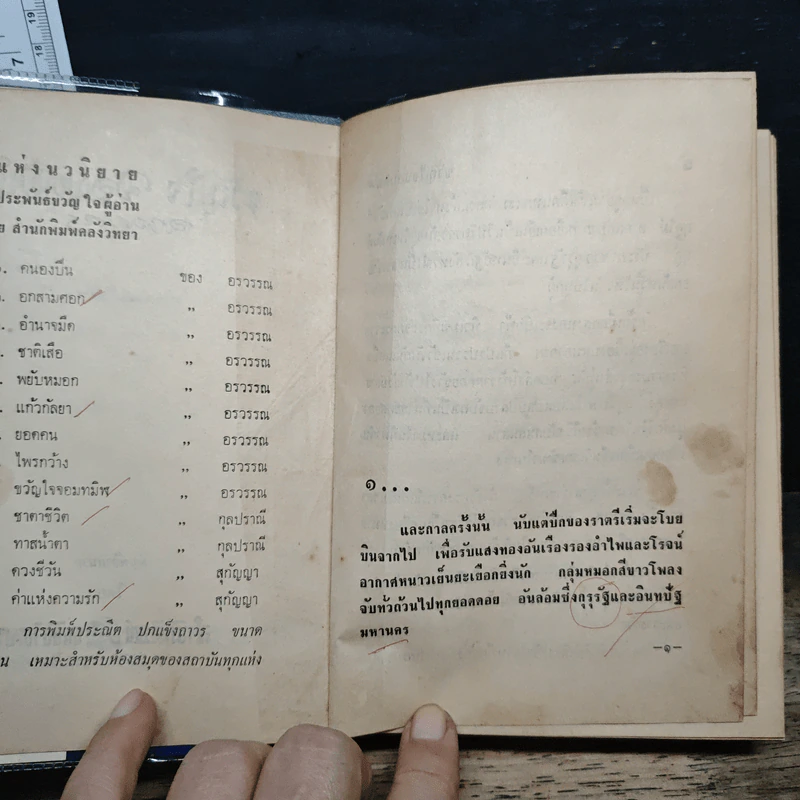 แห่งนวนิยาย
ประพันธ์ขวัญใจผู้อ่าน
สำนักพิมพ์คลังวิทยา
คนองปืน ของ อรวรรณ
อกสามศอก ,, อรวรรณ
อำนาจมืด ,, อรวรรณ
ชาติเสือ ,, อรวรรณ
พยับหมอก ,, อรวรรณ
แก้วกัลยา ,, อรวรรณ
ยอดคน ,, อรวรรณ
ไพรกว้าง ,, อรวรรณ
ขวัญใจจอมทมิฬ ,, อรวรรณ
ชาตาชีวิต ,, กุลปราณี
ทาสน้ำตา ,, กุลปราณี
ดวงชีวัน ,, สุกัญญา
ค่าแห่งความรัก ,, สุกัญญา
การพิมพ์ประณีต ปกแข็งถาวร ขนาด
เหมาะสำหรับห้องสมุดของสถาบันทุกแห่ง
๑...
และกาลครั้งนั้น นับแต่ปีกของราตรีเริ่มจะโบย
บินจากไป เพื่อรับแสงทองอันเรืองรองอำไพและโรจน์
อากาศหนาวเย็นยะเยือกยิ่งนัก กลุ่มหมอกสีขาวโพลง
จับทั่วถ้วนไปทุกยอดดอย อันล้อมซึ่งกุรุรัฐและอินทปัฐ
มหานคร
–๑–